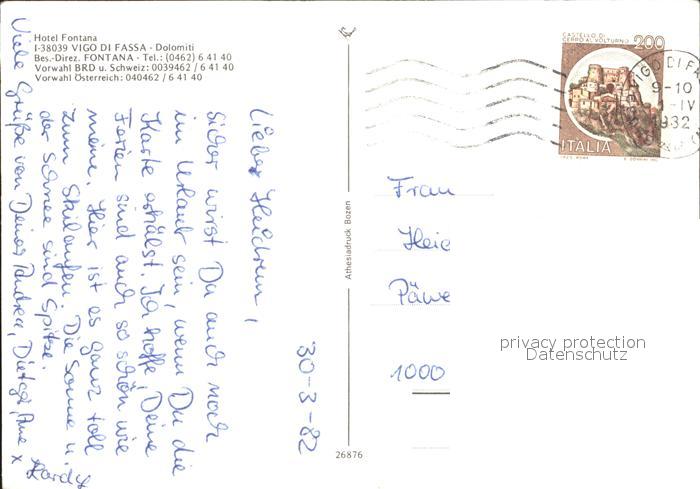 Hotel Fontana
I-38039 VIGO DI FASSA - Dolomiti
Bes.-Direz. FONTANA - Tel.: (0462) 6 41 40
Vorwahl BRD u. Schweiz: 0039462 / 6 41 40
Vorwahl Österreich: 040462 / 6 41 40
30-3-82
Liebe Heidrun,
sicher wirst Du auch noch
im Urlaub sein, wenn Du die
Karte erhälst. Ich hoffe, Deine
Ferien sind auch so schön wie
meine. Hier ist es ganz toll
zum Skilaufen. Die Sonne u.
der Schnee sind Spitze.
Viele Grüße von Deiner Andrea, Dietger,
Athesiadruck Bozen
26876
CASTELLO DI
CERRO AL VOLTURNO
200
ITALIA
9-10
1-IV
Frau
Heid
Päwe
1000
privacy protection
Datenschutz